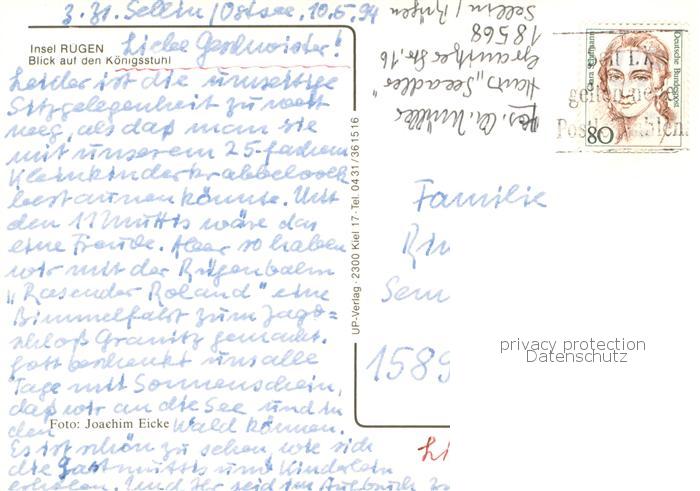 z. Zt. Sellin/Ostsee, 10.5.94
Insel RÜGEN
Blick auf den Königsstuhl
Liebe Geschwister!
Leider ist die umseitige
Sitzgelegenheit zu weit
weg, als daß man sie
mit unserem 25-fachen
Kleinkinderkrabbelvolk
bestaunen könnte. Mit
den 11 Muttis wäre das
eine Freude. Aber so haben
wir mit der Rügenbahn
"Rasender Roland" eine
Bimmelfahrt zum Jagd=
schloß Granitz gemacht.
Gott beschenkt uns alle
Tage mit Sonnenschein,
daß wir an die See und in
den Wald können.
Foto: Joachim Eicke
Es ist schön zu sehen wie sich
die Gastmuttis und Kinderlein
erholen. Und Ihr seid im Aufbruch
UP-Verlag · 2300 Kiel 17 · Tel. 0431/361516
Haus "Seeadler"
Granitzer Str. 16
18568
Sellin/Rügen
Deutsche Bundespost
80
Familie
1589
privacy protection
Datenschutz